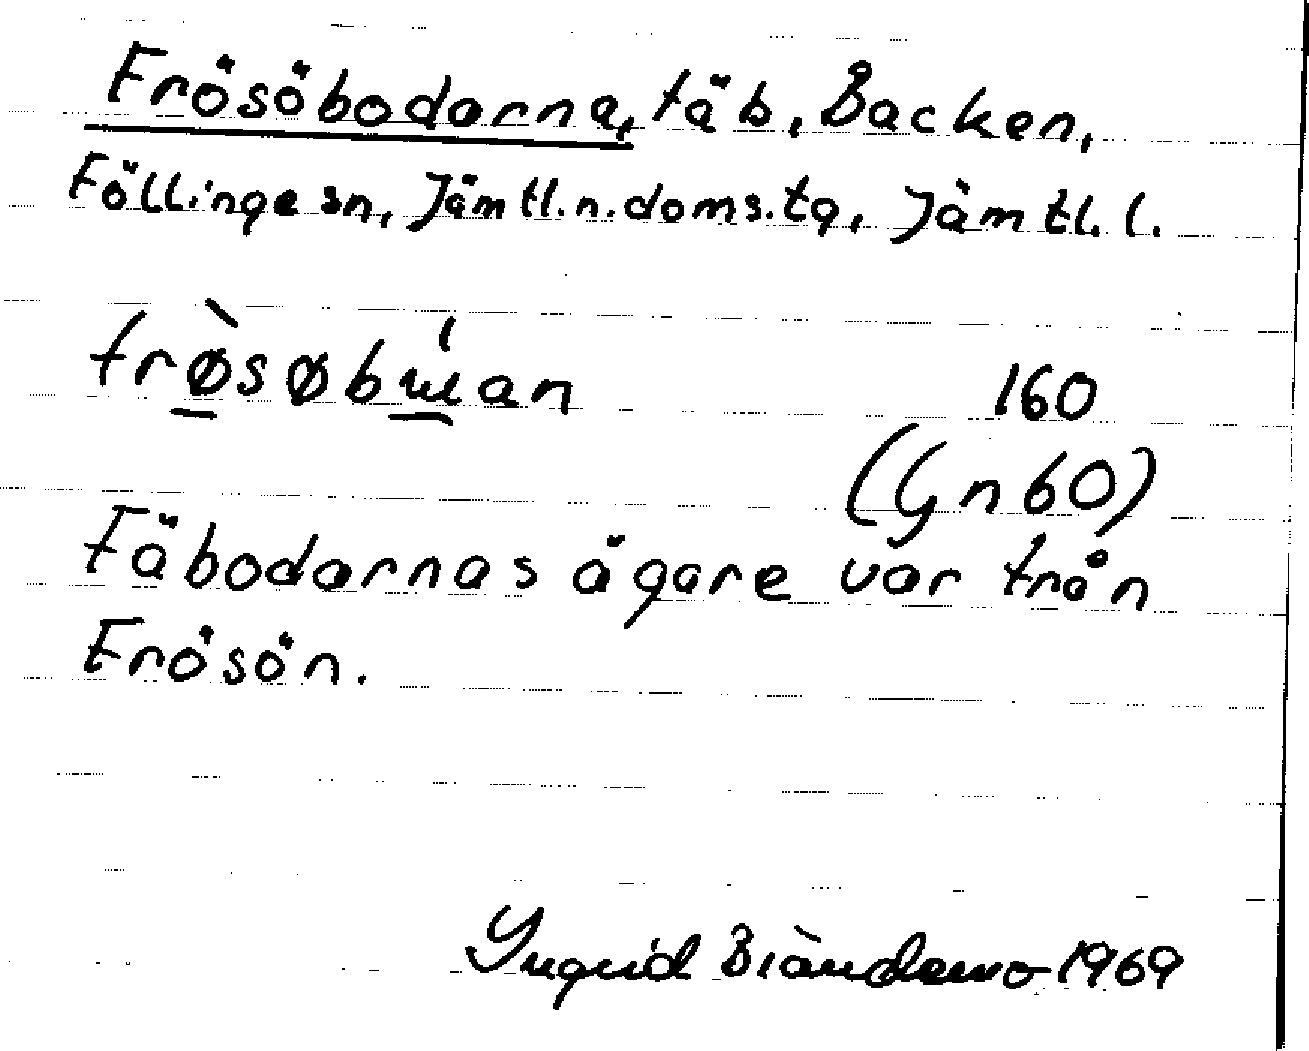 Frösöbodarna, fäb, Backen,
Föllinge sn, Jämtl.n.doms.tg, Jämtl.l.
160
(Gn 60)
Fäbodarnas ägare var från
Frösön.
Ingrid 1969